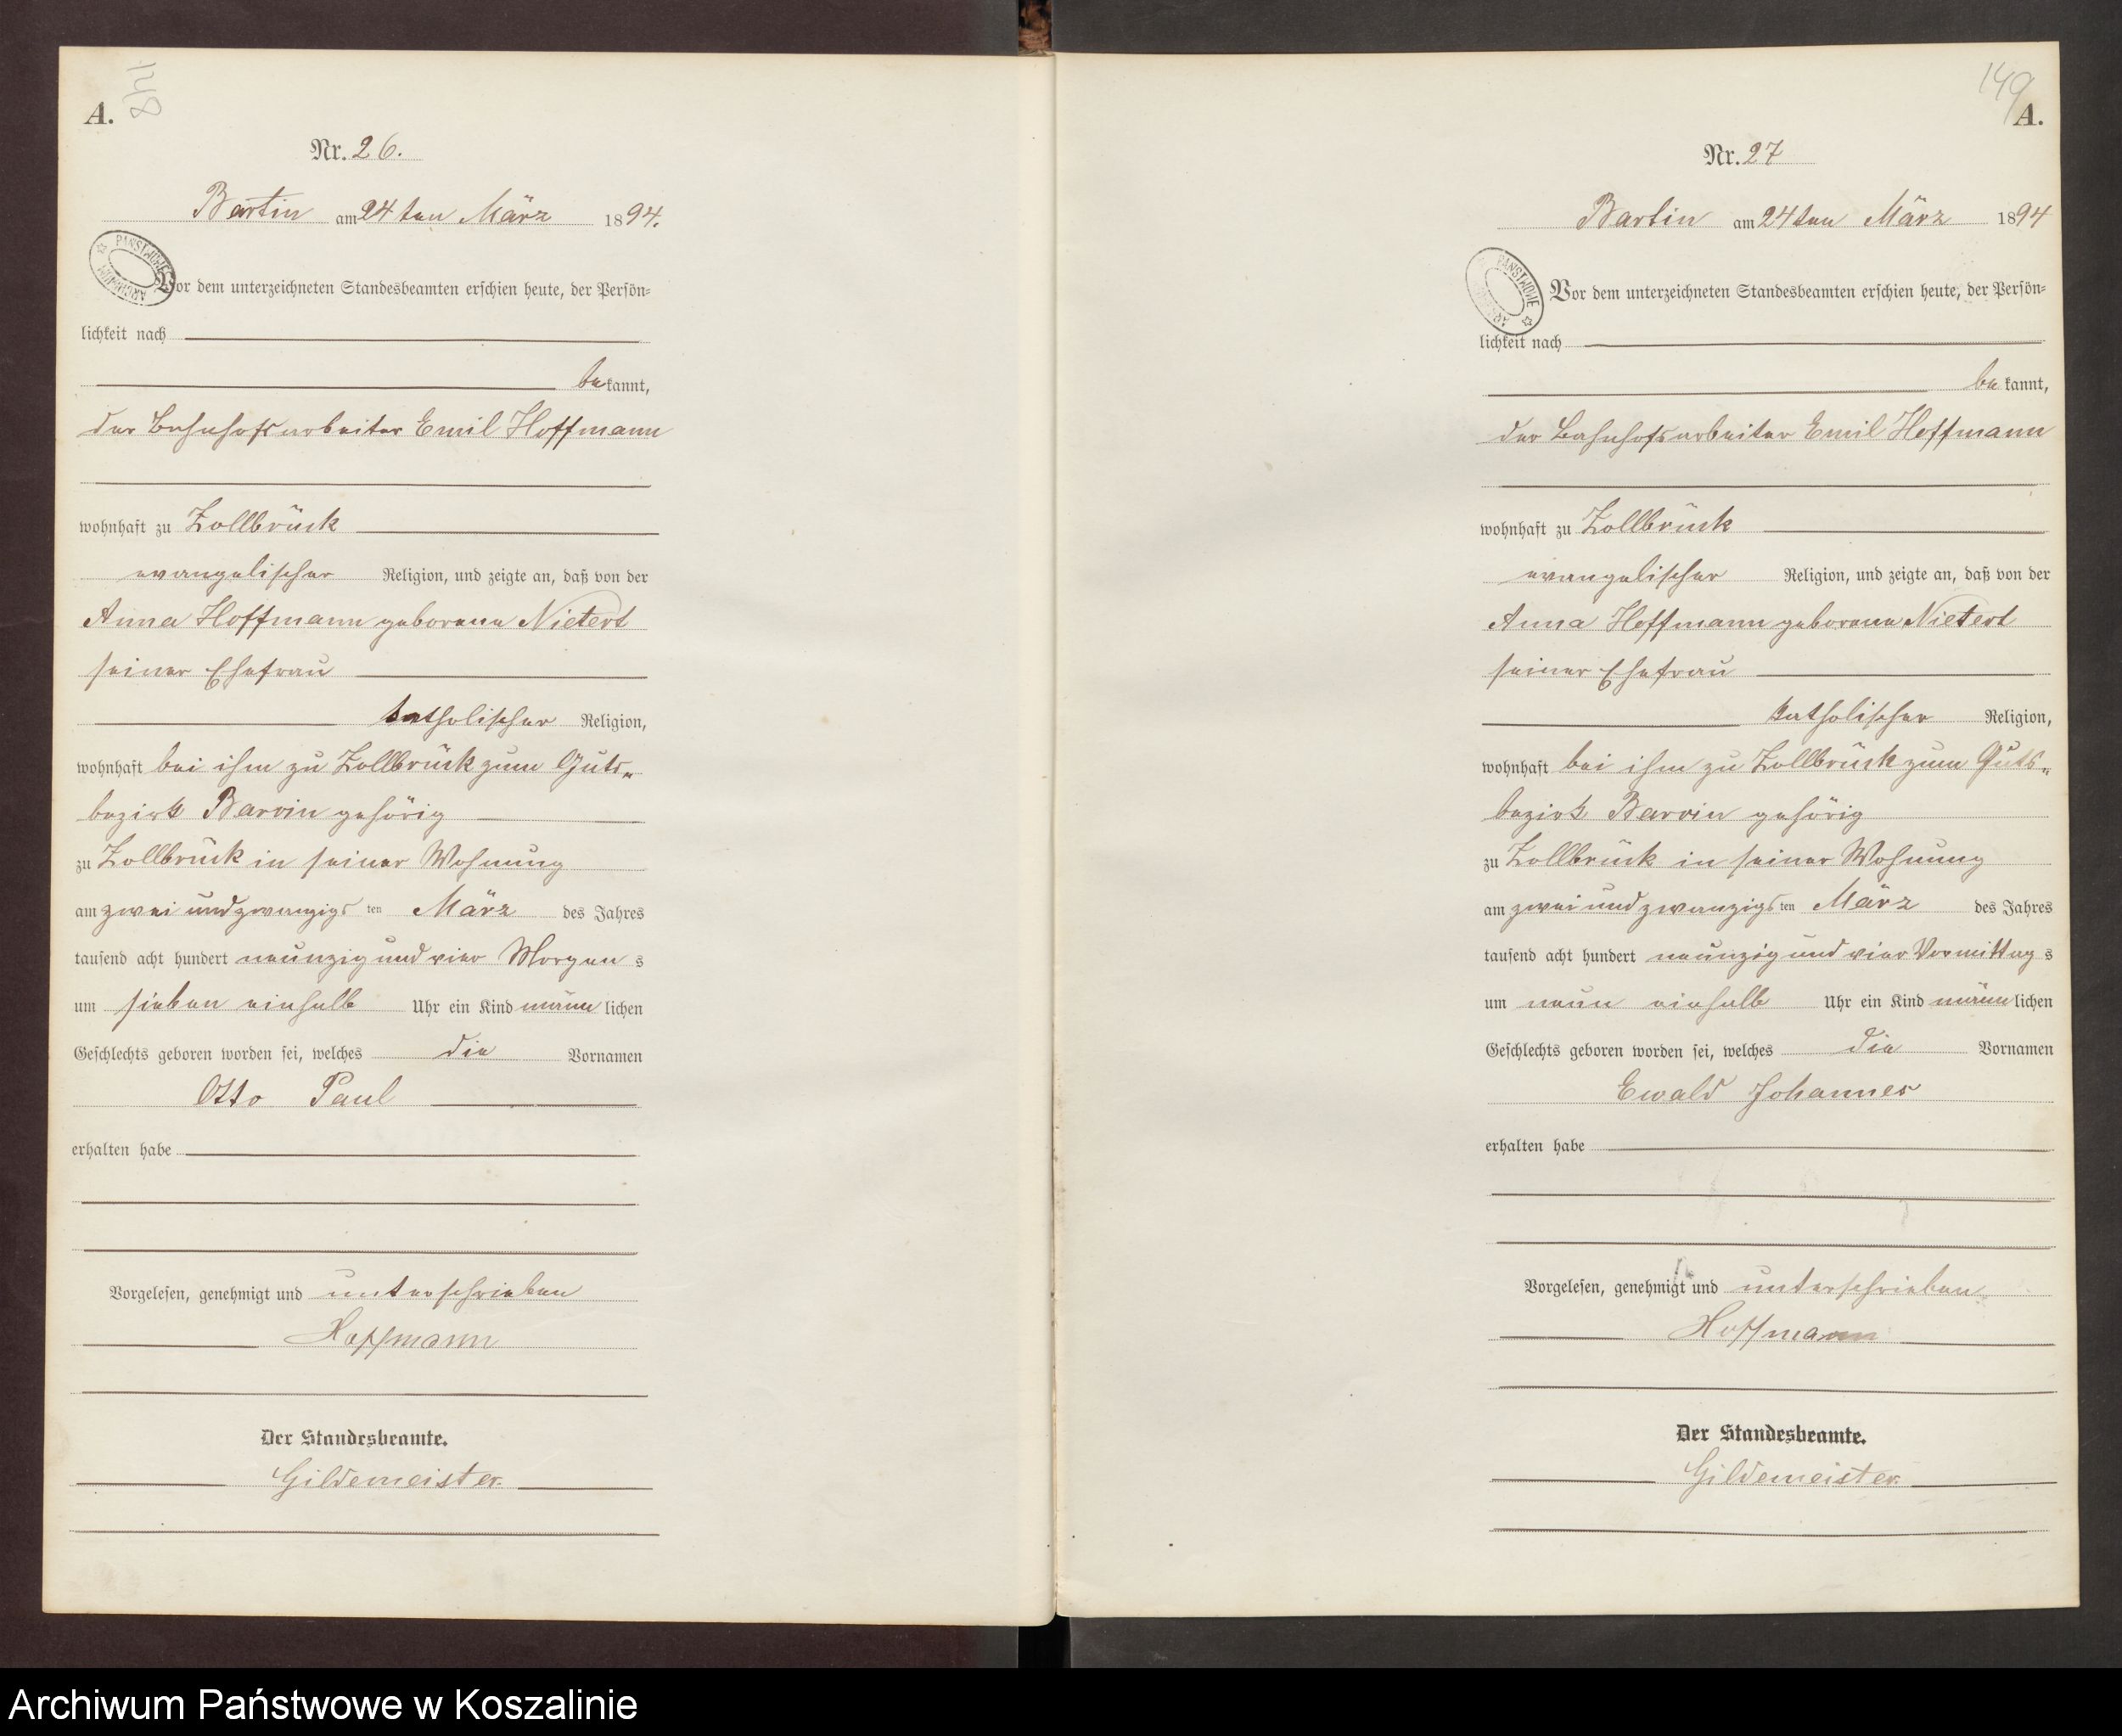 148
A.
Nr. 26.
Bartin am 24ten März 1894.
PAŃSTWOWE ARCHIWUM
Vor dem unterzeichneten Standesbeamten erschien heute, der Persön-
lichkeit nach
bekannt,
der Bahnhofsarbeiter Emil Hoffmann
wohnhaft zu Zollbrück
evangelischer Religion, und zeigte an, daß von der
Anna Hoffmann geborene Nietert
seiner Ehefrau
katholischer Religion,
wohnhaft bei ihm zu Zollbrück zum Guts-
bezirk Barvin gehörig
zu Zollbrück in seiner Wohnung
am zwei und zwanzigsten März des Jahres
tausend acht hundert neunzig und vier Morgens
um sieben einhalb Uhr ein Kind männlichen
Geschlechts geboren worden sei, welches die Vornamen
Otto Paul
erhalten habe
Vorgelesen, genehmigt und unterschrieben
Hoffmann
Der Standesbeamte.
Gildemeister.
149
A.
Nr. 27
Bartin am 24ten März 1894
PAŃSTWOWE ARCHIWUM
Vor dem unterzeichneten Standesbeamten erschien heute, der Persön-
lichkeit nach
bekannt,
der Bahnhofsarbeiter Emil Hoffmann
wohnhaft zu Zollbrück
evangelischer Religion, und zeigte an, daß von der
Anna Hoffmann geborene Nietert
seiner Ehefrau
katholischer Religion,
wohnhaft bei ihm zu Zollbrück zum Guts-
bezirk Barvin gehörig
zu Zollbrück in seiner Wohnung
am zwei und zwanzigsten März des Jahres
tausend acht hundert neunzig und vier Vormittags
um neun einhalb Uhr ein Kind männlichen
Geschlechts geboren worden sei, welches die Vornamen
Ewald Johannes
erhalten habe
Vorgelesen, genehmigt und unterschrieben
Hoffmann
Der Standesbeamte.
Gildemeister.
Archiwum Państwowe w Koszalinie